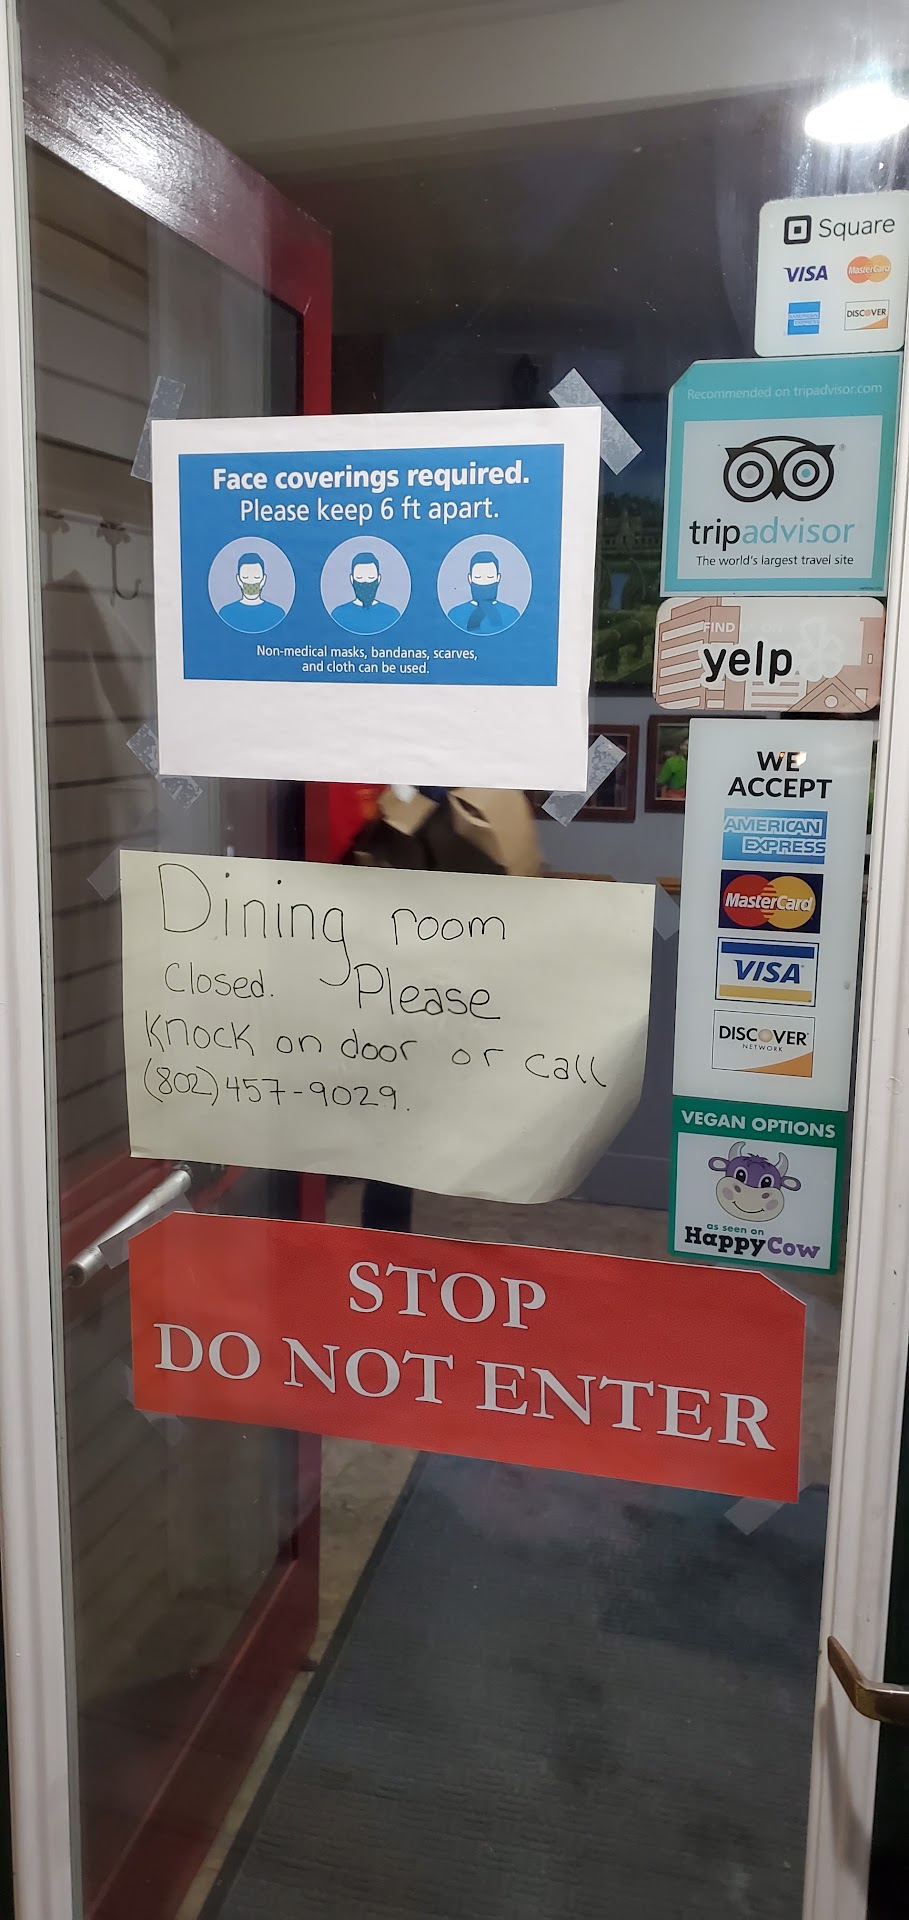 Square
VISA MasterCard
AMERICAN EXPRESS DISCOVER
Recommended on tripadvisor.com
tripadvisor®
The world's largest travel site
Face coverings required.
Please keep 6 ft apart.
Non-medical masks, bandanas, scarves,
and cloth can be used.
FIND
yelp
WE
ACCEPT
AMERICAN
EXPRESS
MasterCard
VISA
DISCOVER
NETWORK
Dining room
Closed. Please
Knock on door or call
(802)457-9029.
VEGAN OPTIONS
as seen on
HappyCow
STOP
DO NOT ENTER